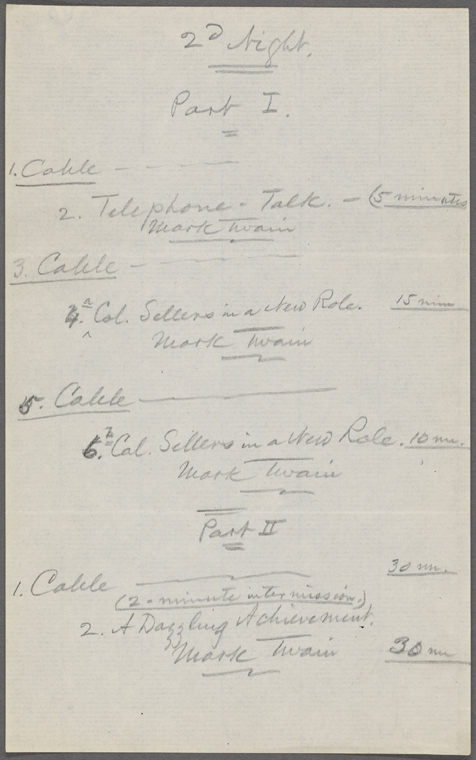 2D Night.
Part I.
1. Cable
2. Telephone-Talk. — (5 minutes
Mark Twain
3. Cable
4. a Col. Sellers in a New Role. 15 min
Mark Twain
5. Cable
6. b Col. Sellers in a New Role. 10 mn.
Mark Twain
Part II
30 mn.
1. Cable
(2-minute intermission.)
2. A Dazzling Achievement.
Mark Twain 30 mn